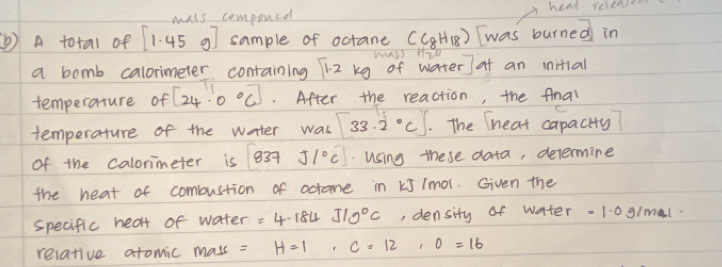 mass compound heat released
b) A total of [1.45 g] sample of octane (C8H18) [was burned] in
mass H2O
a bomb calorimeter containing [1.2 kg of water] at an initial
Ti
temperature of [24.0 °C]. After the reaction, the final
temperature of the water was [33.2 °C]. The [heat capacity]
of the calorimeter is [837 J/°C]. Using these data, determine
the heat of combustion of octane in kJ/mol. Given the
specific heat of water = 4.184 J/g°C, density of water = 1.0 g/mol.
relative atomic mass = H = 1, C = 12, O = 16